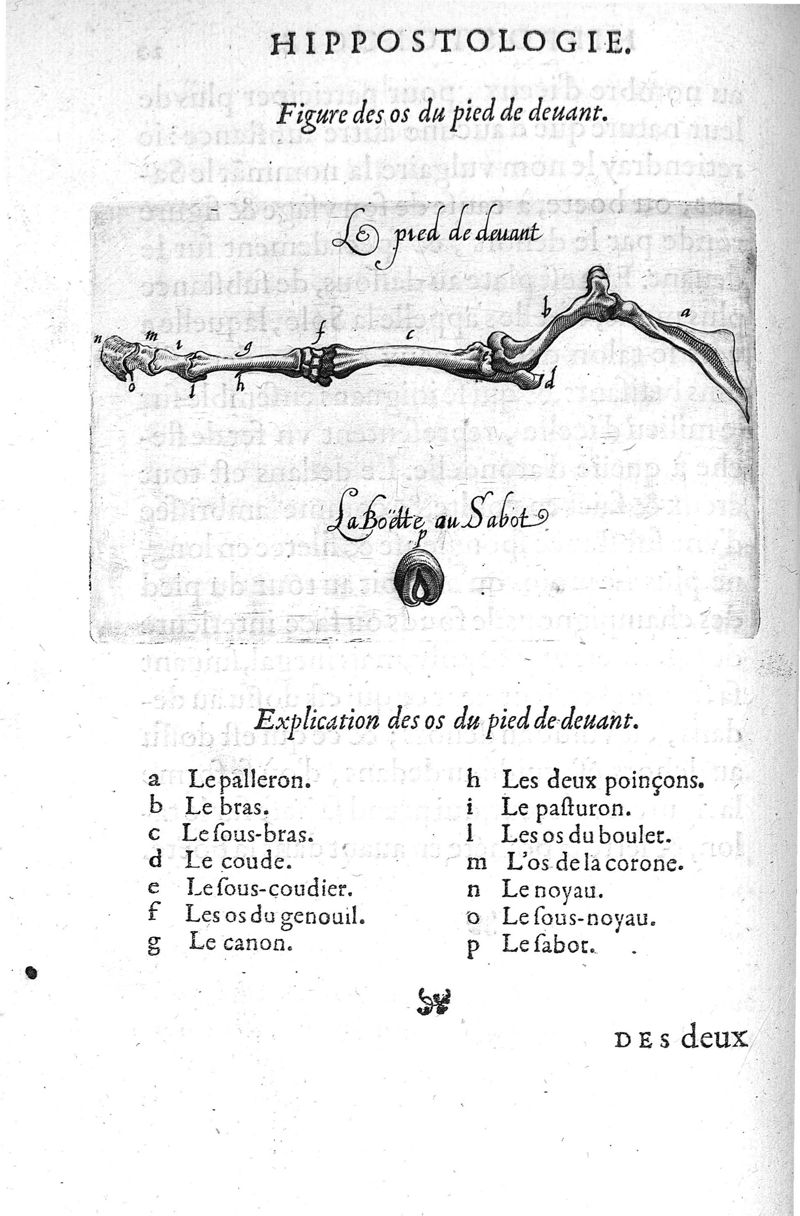 HIPPOSTOLOGIE.
Figure des os du pied de deuant.
Le pied de deuant
n m i g f c b a
o l h e d
La Boëtte au Sabot
p
Explication des os du pied de deuant.
a Le palleron.
b Le bras.
c Le ſous-bras.
d Le coude.
e Le ſous-coudier.
f Les os du genouil.
g Le canon.
h Les deux poinçons.
i Le paſturon.
l Les os du boulet.
m L'os de la corone.
n Le noyau.
o Le ſous-noyau.
p Le ſabot.
DES deux